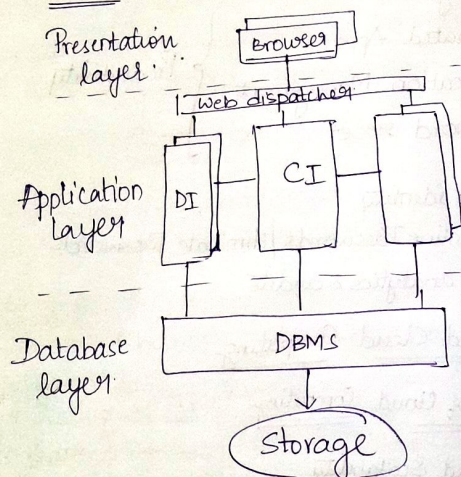 Presentation
layer.
Browser
Web dispatcher
Application
layer
DI
CI
Database
layer.
DBMS
Storage